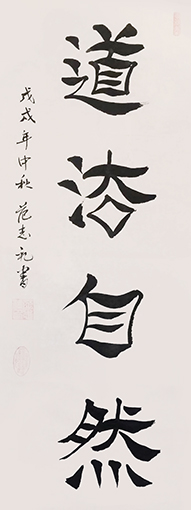 道法自然
戊戌年中秋 范志礼书